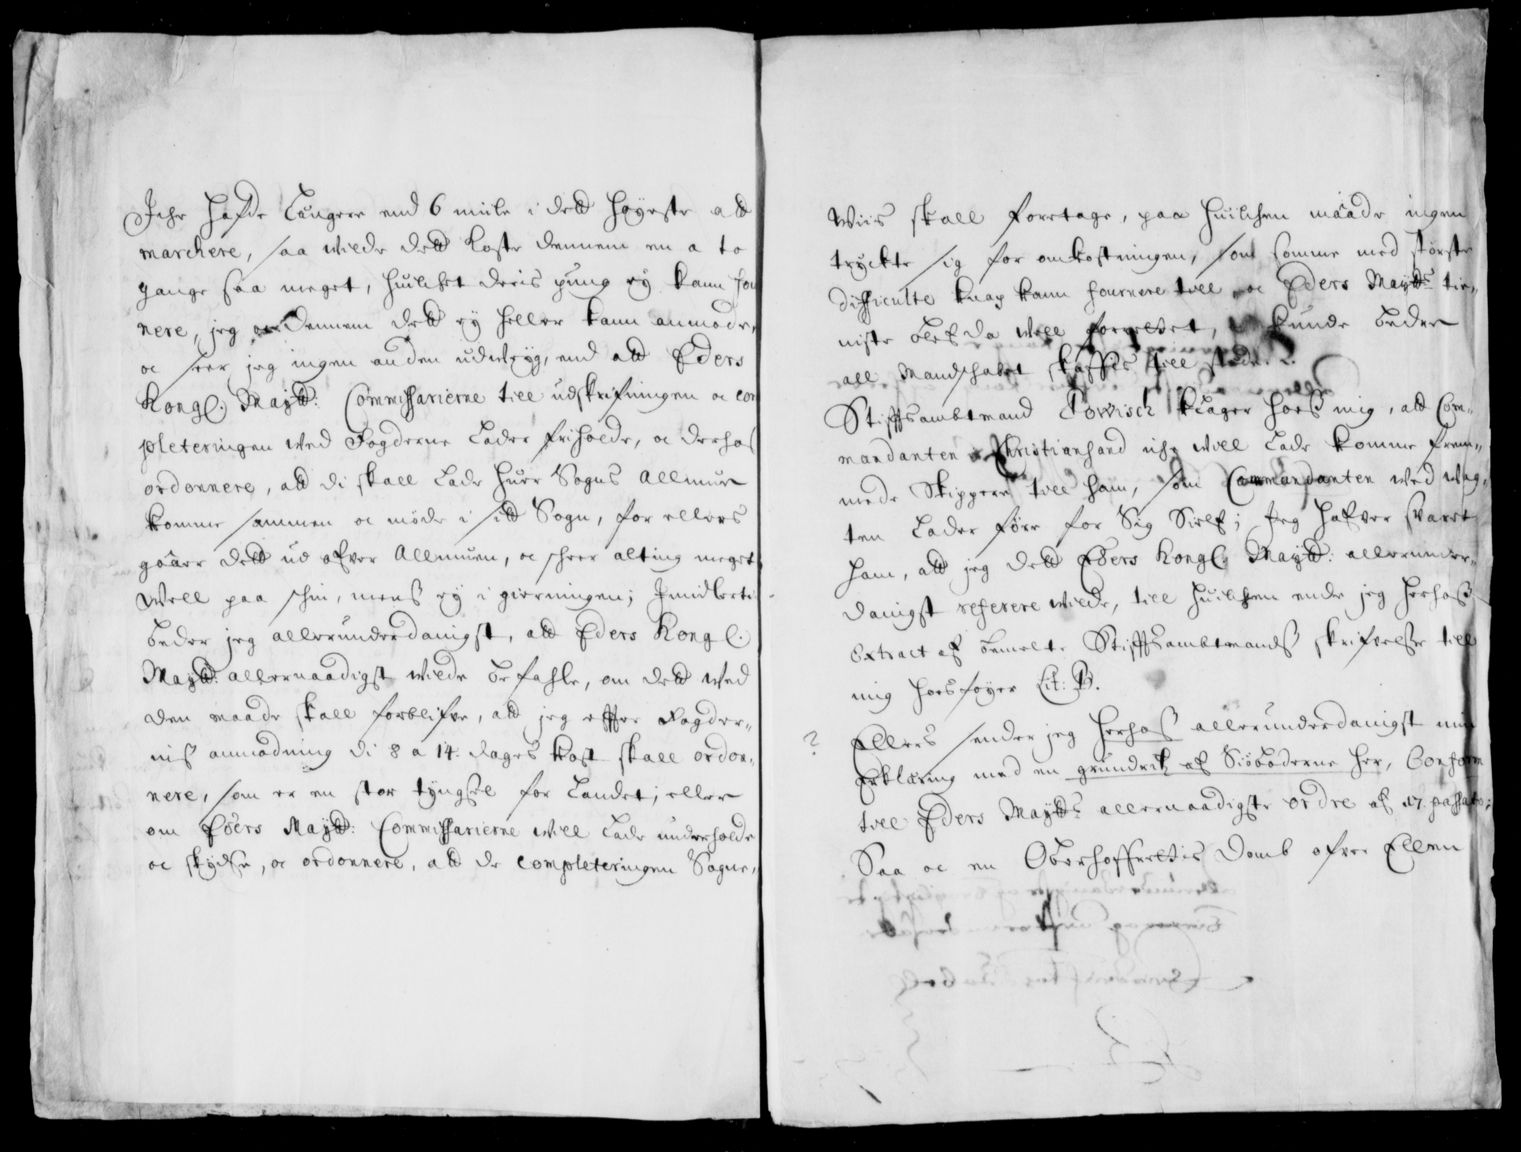 Iche hafde Længere end 6 miile i dett høyeste att
marchere, saa wilde dett koste dennem en a to
gange saa meget, huilket deris pung ey kann four
nere, jeg dennem dett ey heller kann anmode,
oc seer jeg ingen anden udwey, end att Eders
Kongl. Maytt: Commissarierne till udskrifningen oc com
pleteringen wed Fogderne lader friholde, oc derhos
ordonnere, att di skall lade huer Sogns Allmue
komme sammen oc møde i sit Sogn, for ellers
gaaer dett ud ofver Allmuen, oc scheer alting meget
well paa schin, mens ey i gierningen; Imidlertid
beder jeg allerunderdanigst, att Eders Kongl.
Maytt: allernaadigst wilde befahle, om dett wed
den maade skall forblifve, att jeg effter Fogder-
nis anmodning di 8 a 14 dages kost skall ordon-
nere, som er en stor tyngsel for Landet; eller
om Eders Maytt: Commissarierne will lade underholde
oc skydse, oc ordonnere, att de completeringen Sogne-
wiis skall foretage, paa huilchen maade ingen
tryckte sig for omkostningen, som somme med største
difficulte knap kann fournere till oc Eders Maytts tie-
niste blef da well forrettet, kunde beder
all Mandschabet skaffis till stede.
Stiffsambtmand Powisch klager hoes mig, att Com-
mandanten Christiansand iche will lade komme frem-
mede Skippere till ham, som Commandanten wed wag-
ten lader føre for Sig Sielf; Jeg hafver svaret
ham, att jeg dett Eders Kongl. Maytt: allerunder-
danigst referere wilde, till huilchen ende jeg herhos
Extract af bemelte Stiffsambtmands skrifvelse till
mig hosføyer Lit: B.
? Ellers sender jeg herhos allerunderdanigst min
Erklæring med en grundrids af Siøboderne her, Conform
till Eders Maytts allernaadigste ordre af 17. passato;
Saa oc en Oberhoffrettis Domb ofver Ellen